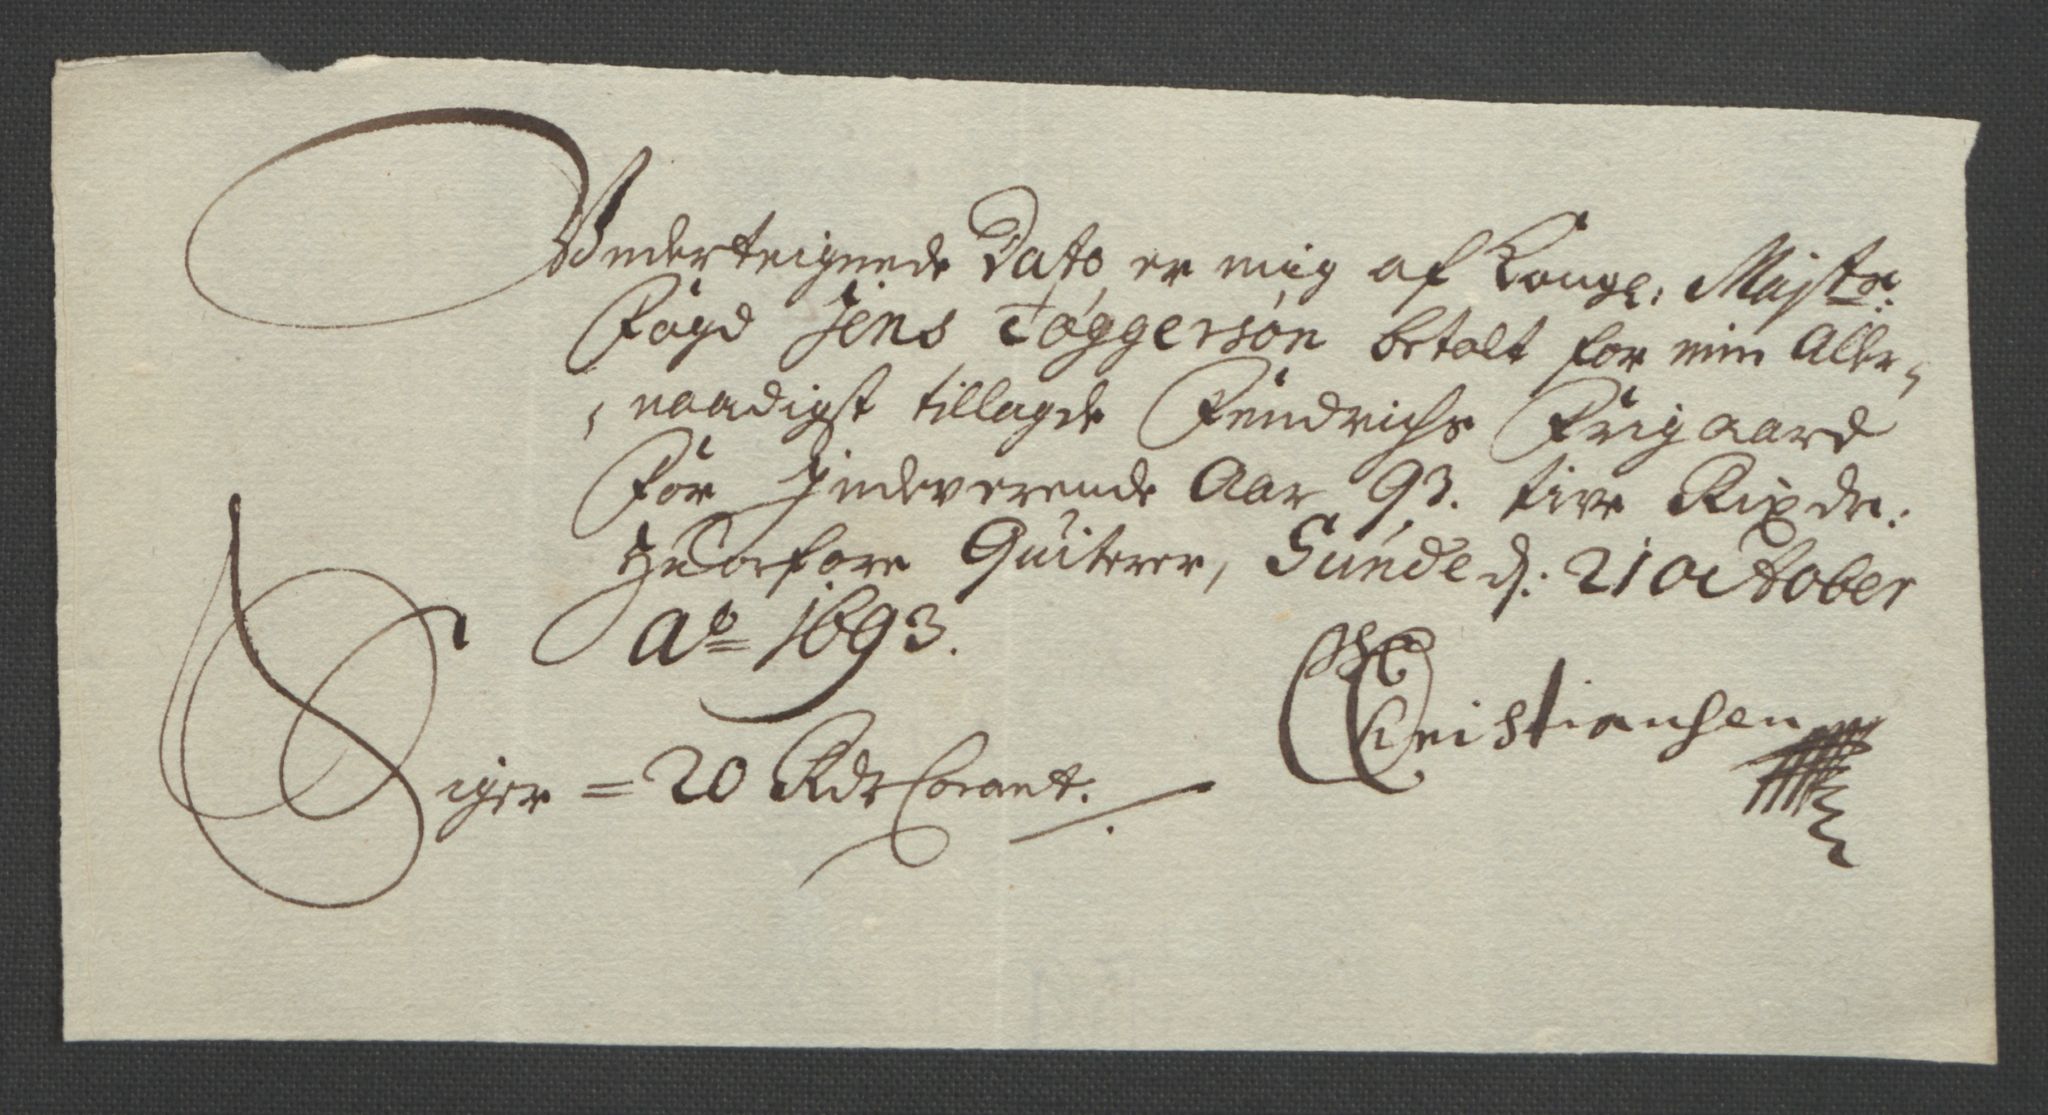 Underteignede Dato er mig af Kongl: Majsts:
Fogd Jens Tøggersøn betalt for min Aller-
naadigst tillagde Fendrichs Frigaard
for Indeverende Aar 93. tive Rixdr:
Huorfore Quiterer, Sunde d: 21 October
Ao 1693.
Christiansen
Siger = 20 Rdr Corant.